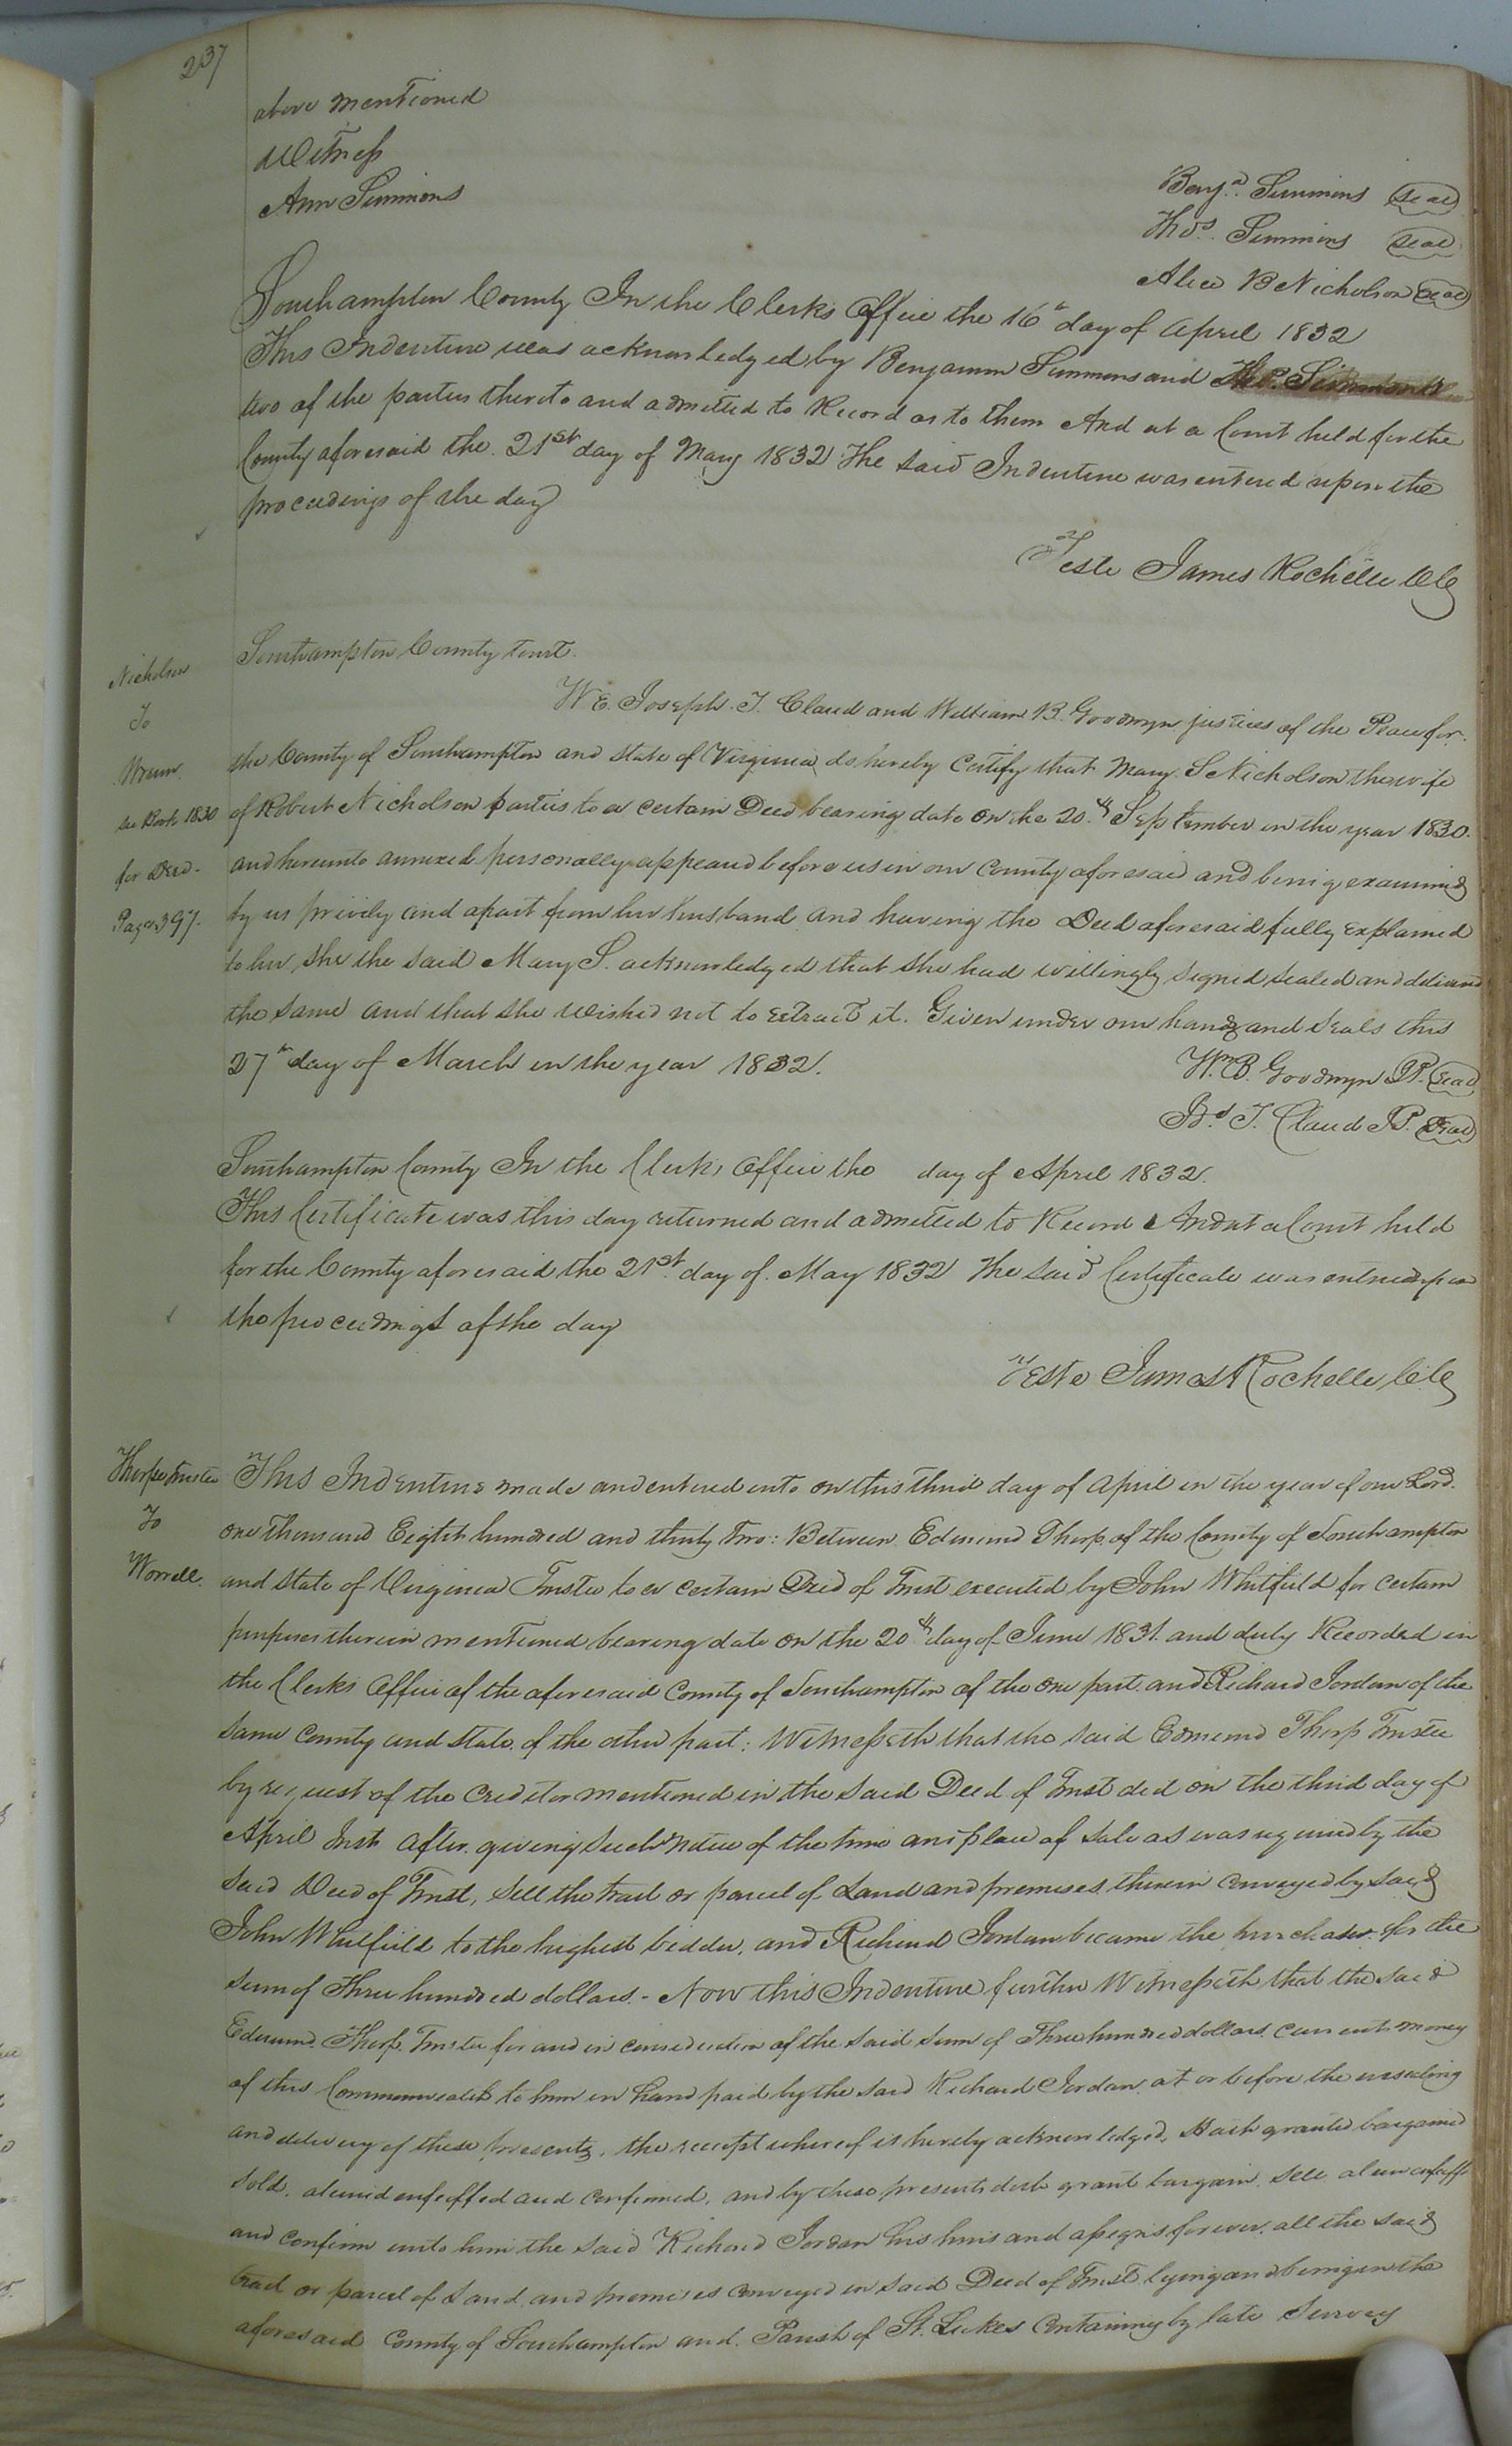 237
above mentioned
Witness
Ann Simmons
Benj.n Simmons seal
Thos. Simmons seal
Alice B Nicholson seal
Southampton County In the Clerks Office the 16th day of April 1832
This Indenture was acknowledged by Benjamin Simmons and Thos. Simmons
two of the parties thereto and admitted to Record as to them And at a Court held for the
County aforesaid the 21st day of May 1832 The said Indenture was entered upon the
proceedings of the day
Teste James Rochelle Clk
Nicholson
To
see Book 1830
for Deed.
Page 397.
Southampton County Court.
WE. Joseph. T. Claud and William B. Goodwyn justices of the Peace for.
the County of Southampton and state of Virginia do hereby Certify that Mary. S Nicholson the wife
of Robert Nicholson parties to a certain Deed bearing date on the 20.th September in the year 1830.
and hereunto annexed personally appeared before us in our County aforesaid and being examined
by us privily and apart from her husband and having the Deed aforesaid fully explained
to her, she the said Mary S. acknowledged that she had willingly signed sealed and delivered
the same and that she wished not to retract it. Given under our hands and seals this
27th day of March in the year 1832.
Wm B. Goodwyn JP. seal
Jos. T. Claud JP. seal
Southampton County In the Clerks Office the day of April 1832.
This Certificate was this day returned and admitted to Record And at a Court held
for the County aforesaid the 21st. day of. May 1832 The said Certificate was entered upon
the proceedings of the day
Teste James Rochelle Clk
Thorpe Trustee
To
Worrell.
This Indenture made and entered into on this third day of April in the year of our Lord.
one thousand Eight hundred and thirty Two: Between Edmund Thorp. of the County of Southampton
and State of Virginia Trustee to a certain Deed of Trust executed by John Whitfield for certain
purposes therein mentioned bearing date on the 20th day of June 1831. and duly Recorded in
the Clerks Office of the aforesaid County of Southampton of the one part. and Richard Jordan of the
same County and State. of the other part: Witnesseth that the said Edmund Thorp Trustee
by request of the Creditor mentioned in the said Deed of Trust did on the third day of
April Inst. after. giving such notice of the time and place of sale as was required by the
said Deed of Trust, sell the tract or parcel of Land and premises. therein conveyed by said
John Whitfield to the highest bidder, and Richard Jordan became the purchaser for the
sum of Three hundred dollars. - Now this Indenture further Witnesseth that the said
Edmund. Thorp. Trustee for and in consideration of the said sum of Three hundred dollars current money
of this Commonwealth to him in hand paid by the said Richard Jordan. at or before the ensealing
and delivery of these presents. the receipt whereof is hereby acknowledged, Hath granted bargained
sold. aliened enfeoffed and confirmed, and by these presents doth grant bargain. sell alien enfeoff
and confirm unto him the said Richard Jordan his heirs and assigns forever. all the said
tract or parcel of Land. and premises conveyed in said Deed of Trust lying and being in the
aforesaid County of Southampton and. Parish of St. Lukes Containing by late Survey